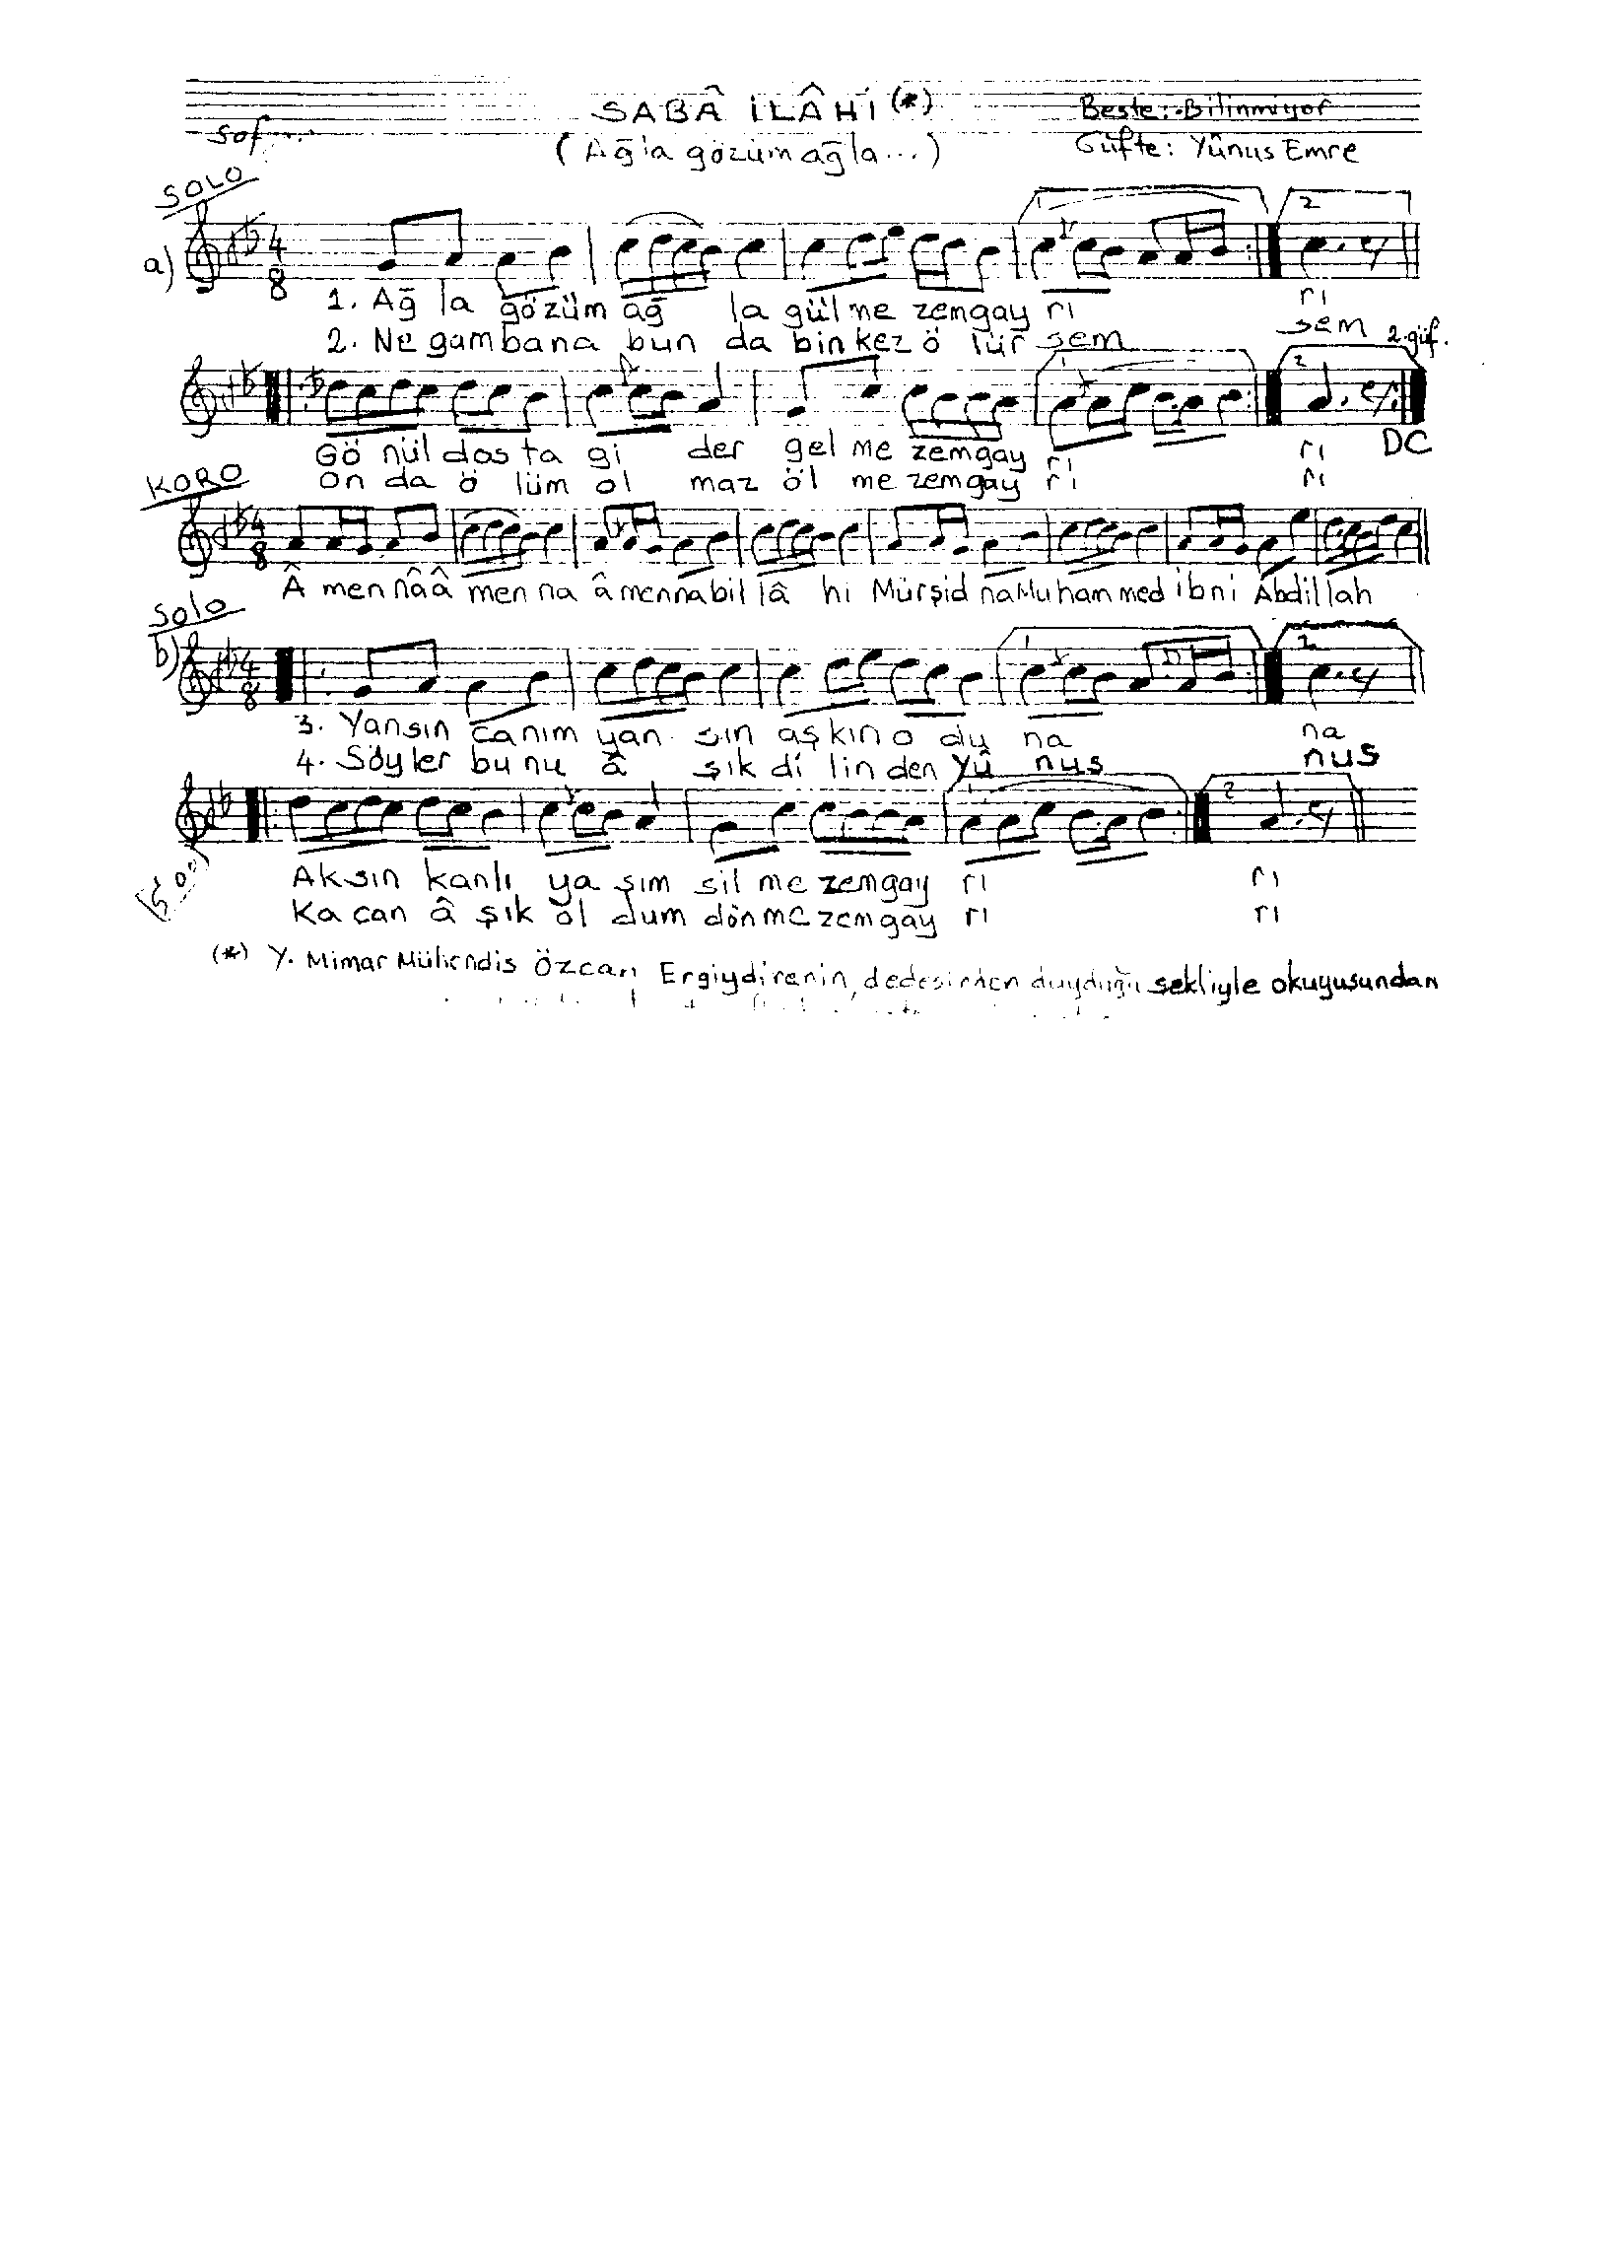 SABÂ İLÂHİ (*)
Beste: Bilinmiyor
Sof...
(Ağla gözüm ağla...)
Güfte: Yûnus Emre
SOLO
a)
4
8
1
2
1. Ağ la gözüm ağ la gül me zemgay ri ri
2. Ne gambana bun da binkez ö lür sem sem 2.güf.
1
2
Gö nül dos ta gi der gel me zemgay ri ri DC
On da ö lüm ol maz öl me zemgay ri ri
KORO
4
8
Â men nââ men na â mennabil lâ hi Mürşid naMuhammed ibni Abdillah
Solo
b)
4
8
1
2
3. Yansın canım yan sın aşkın o du na na
4. Söyler bu nu â şık di lin den Yû nus nus
1
2
Aksın kanlı ya şım sil me zemgay ri ri
Ka can â şık ol dum dönme zemgay ri ri
(Son)
(*) Y. Mimar Mühendis Özcan Ergiydirenin, dedesinden duyduğu şekliyle okuyuşundan